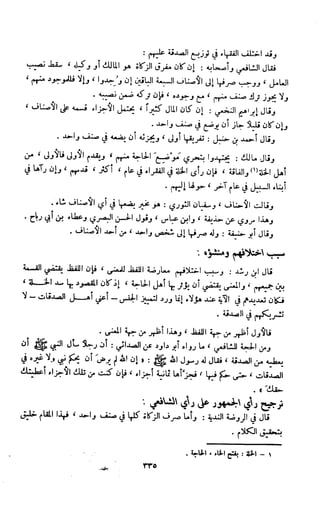 وقد اختلف الفقهاء في توزيع الصدقة عليهم :
فقال الشافعي وأصحابه : إن كان مفرق الزكاة هو المالك أو وكيله ، سقط نصيب
العامل ، ووجب صرفها إلى الأصناف السبعة الباقين إن وُجدوا ، وإلا فللموجود منهم ،
ولا يجوز ترك صنف منهم ، مع وجوده ، فإن تركه ضمن نصيبه .
وقال إبراهيم النخعي : إن كان المال كثيراً ، يحتمل الأجزاء قسمه على الأصناف ،
وإن كان قليلاً جاز أن يوضع في صنف واحد .
وقال أحمد بن حنبل : تفريقها أولى ، ويجزئه أن يضعه في صنف واحد .
وقال مالك : يجتهد ويتحرى موضع الحاجة منهم ، ويقدم الأولى فالأولى ، من
أهل الخلة (١) والفاقة ، فإن رأى الخلة في الفقراء في عام ، أكثر ، قدمهم ، وإن رآها في
أبناء السبيل في عام آخر ، حولها إليهم .
وقالت الأحناف ، وسفيان الثوري : هو مخير يضعها في أي الأصناف شاء .
وهذا مروي عن حذيفة ، وابن عباس ، وقول الحسن البصري وعطاء بن أبي رباح .
وقال أبو حنيفة : وله صرفها إلى شخص واحد ، من أحد الأصناف .
سبب اختلافهم ومنشؤه :
قال ابن رشد : وسبب اختلافهم معارضة اللفظ للمعنى ، فإن اللفظ يقتضي القسمة
بين جميعهم ، والمعنى يقتضي أن يؤثر بها أهل الحاجة ، إذ كان المقصود بها سد الخلة ،
فكان تعديدهم في الآية عند هؤلاء إنما ورد لتمييز الجنس – أعني أهل الصدقات – لا
تشريكهم في الصدقة .
فالأول أظهر من جهة اللفظ ، وهذا أظهر من جهة المعنى .
ومن الحجة للشافعي ، ما رواه أبو داود عن الصدائي : أن رجلاً سأل النبي ﷺ أن
يعطيه من الصدقة ، فقال له رسول الله ﷺ : « إن الله لم يرض أن يحكم نبي ولا غيره في
الصدقات ، حتى حكم فيها ، فجزأها ثمانية أجزاء ، فإن كنت من تلك الأجزاء أعطيتك
حقك » .
ترجيح رأي الجمهور على رأي الشافعي :
قال في الروضة الندية : وأما صرف الزكاة كلها في صنف واحد ، فهذا المقام خليق
بتحقيق الكلام .
١ – الخلة : بفتح الخاء : الحاجة .
٣٣٥